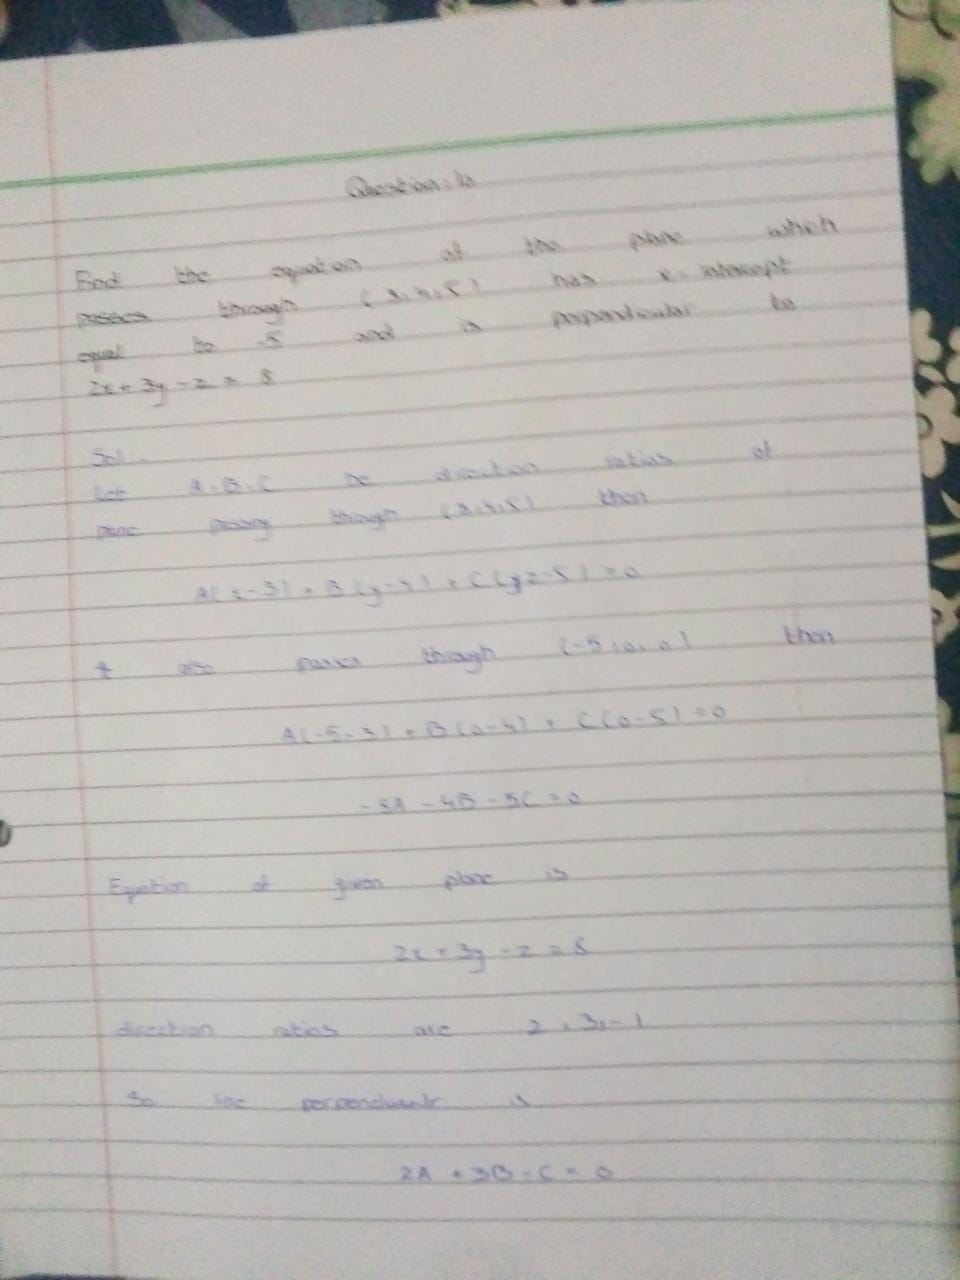 Question: 10
Find the equation of the plane which
passes through (3,4,5) has x-intercept
equal to -5 and is perpendicular to
2x+3y-z = 8
Sol
Let A, B, C be direction ratios of
plane passing through (3,4,5) then
A(x-3) + B(y-4) + C(z-5) = 0
It also passes through (-5,0,0) then
A(-5-3) + B(0-4) + C(0-5) = 0
-8A - 4B - 5C = 0
Equation of given plane is
2x + 3y - z = 8
direction ratios are 2, 3, -1
So line is
2A + 3B - C = 0